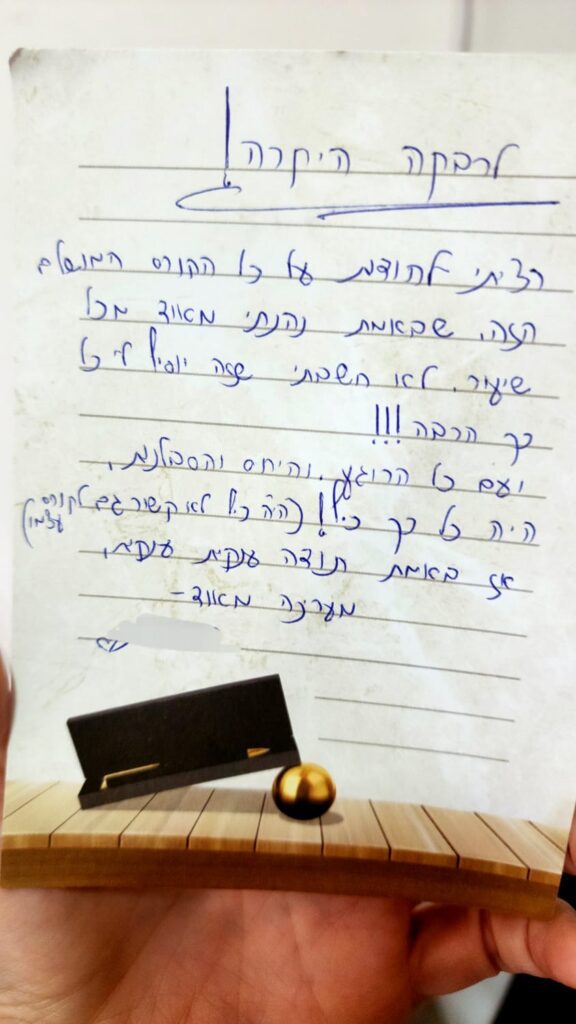 לרבקה היקרה!
רציתי להודות על כל הקורס המושלם
הזה, שבאמת נהנתי מאווד מכל
שיעור. לא חשבתי שזה יועיל לי כל
כך הרבה!!!
ועם כל הרוגע, והיחס והסבלנות,
היה כל כך כיף! (היה כיף לא קשר גם לקורס עצמו)
אז באמת תודה ענקית ענקית,
מעריכה מאווד-